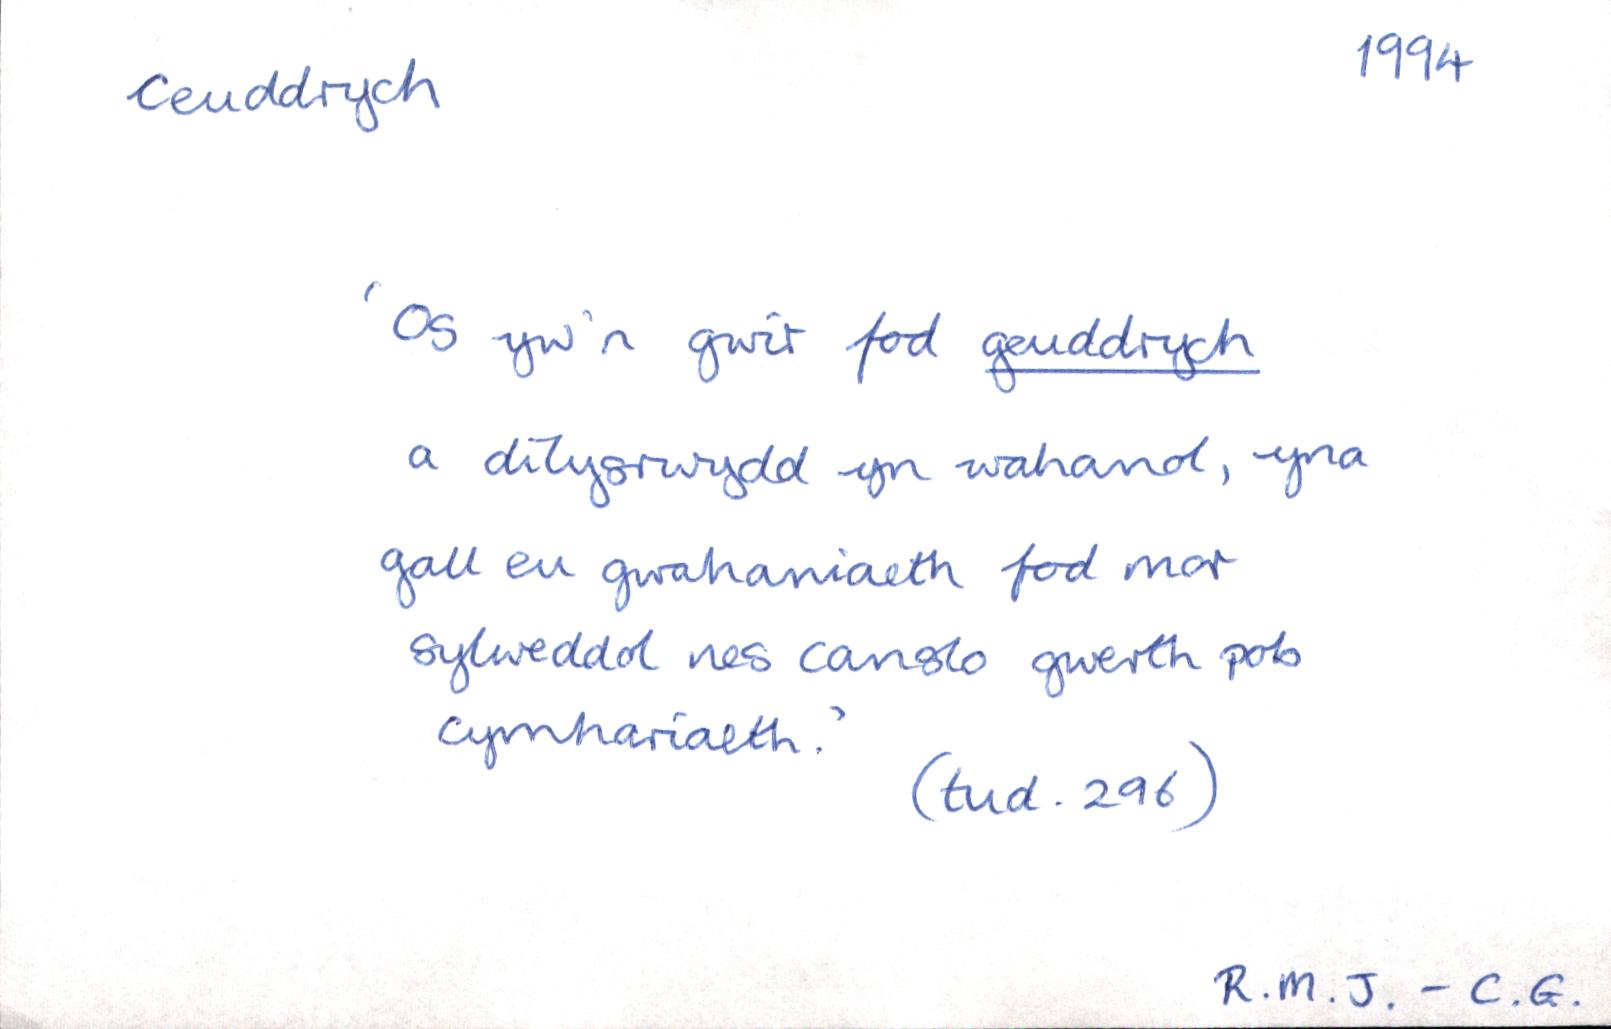 Ceuddrych
1994
'Os yw'n gwir fod geuddrych
a dilysrwydd yn wahanol, yna
gall eu gwahaniaeth fod mor
sylweddol nes canslo gwerth pob
cymhariaeth.'
(tud. 296)
R.M.J. - C.G.